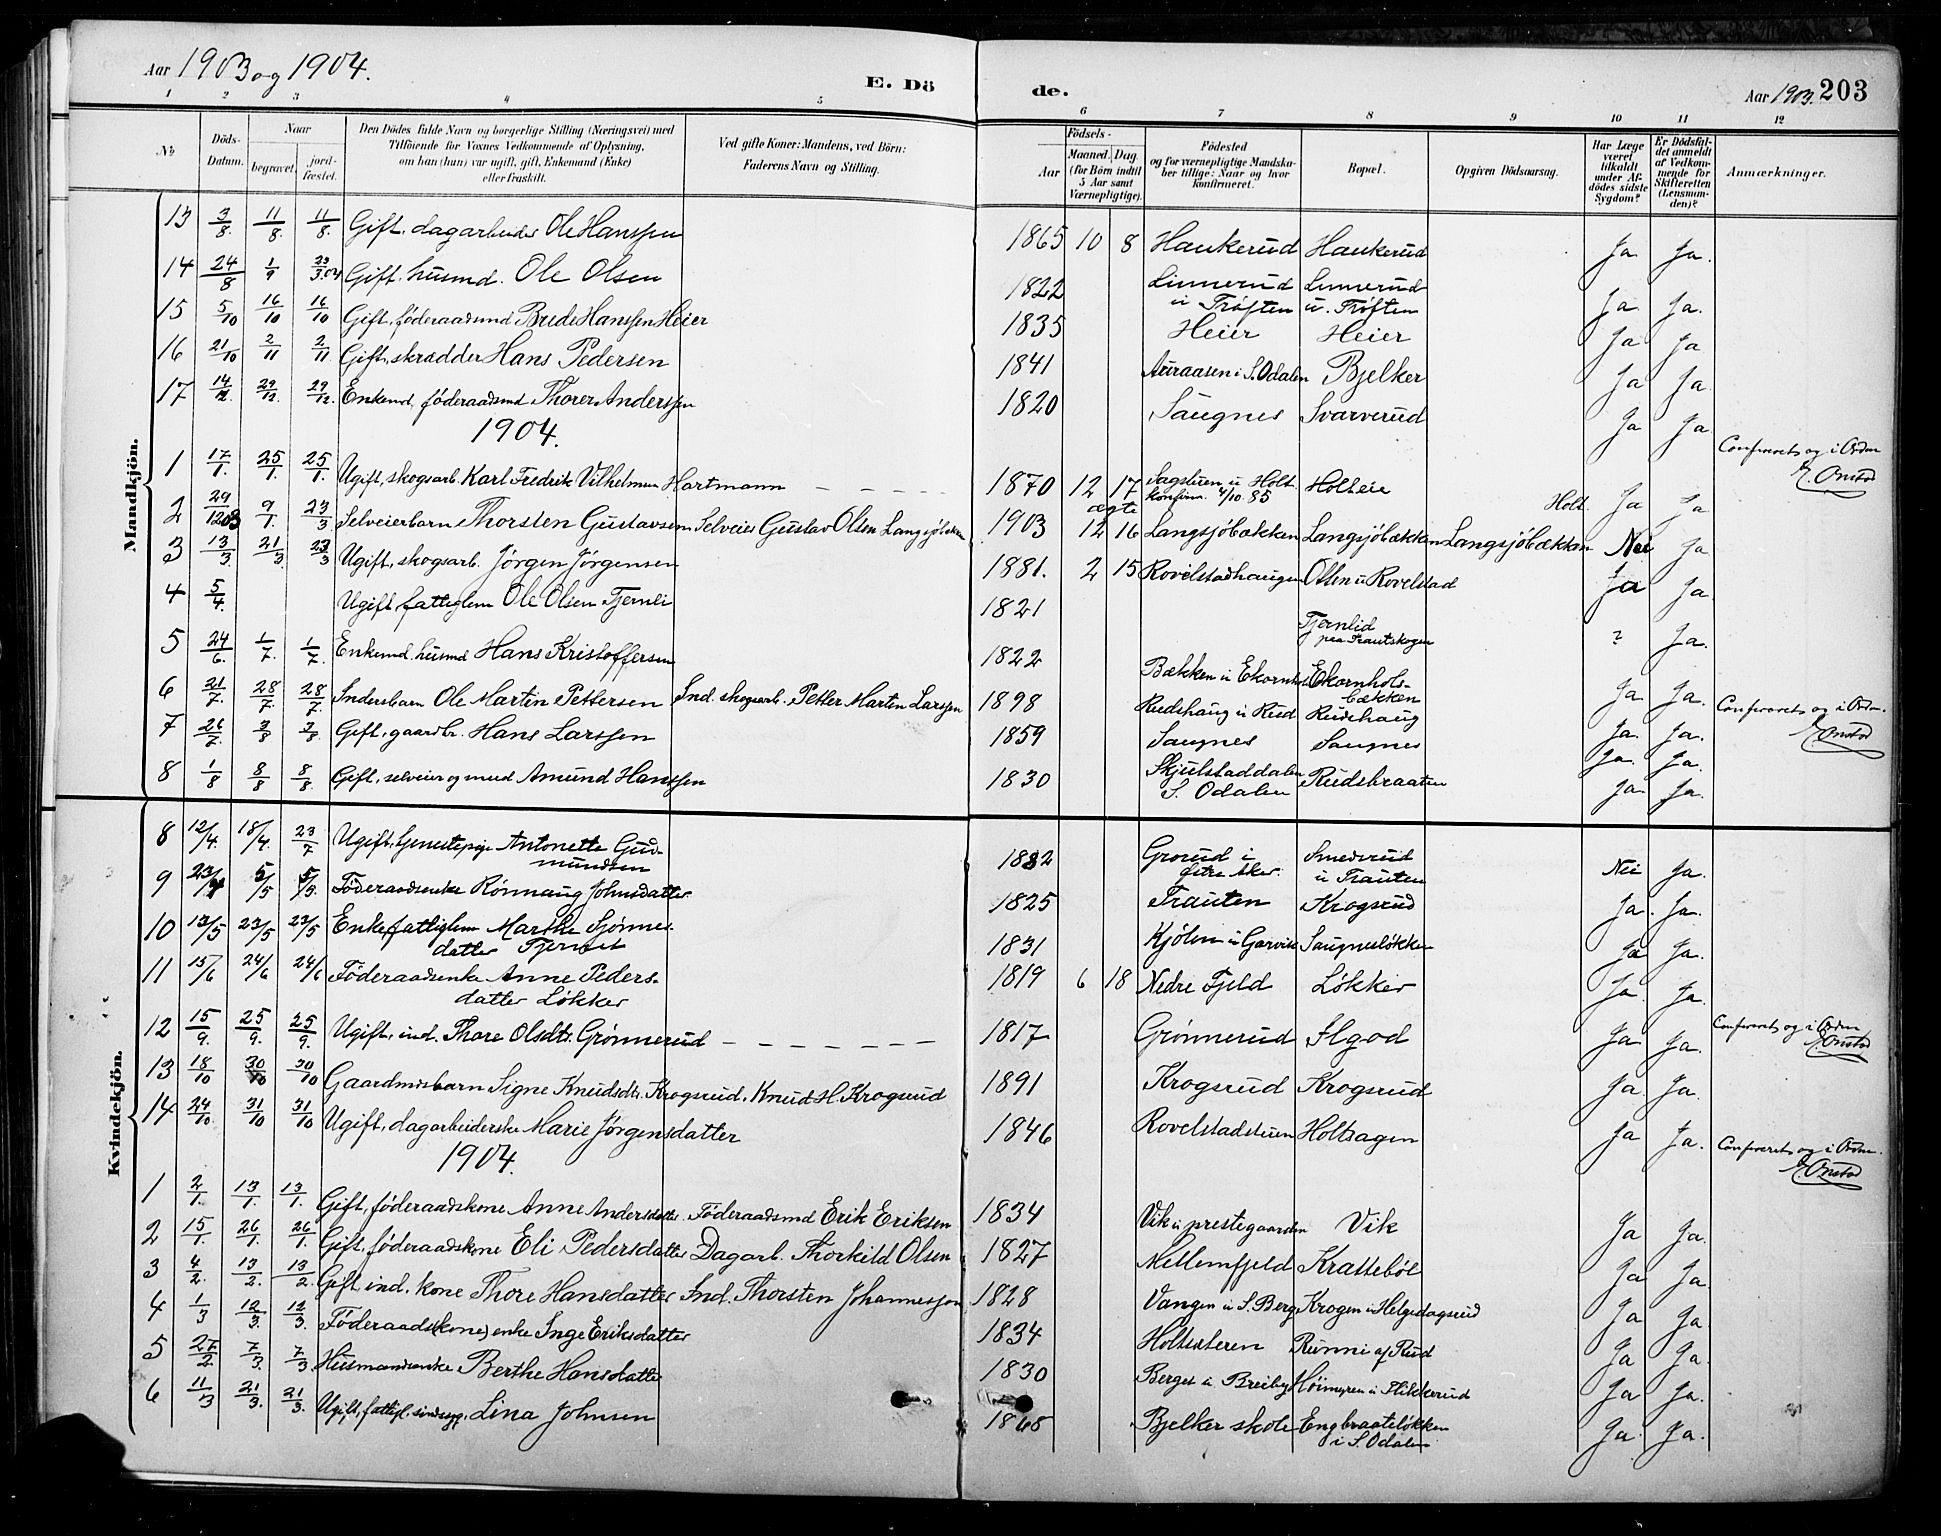 Aar 1903 og 1904. E. Dö de. Aar 1903. 203
1 2 3 4 5 6 7 8 9 10 11 12
No Döds-Datum. Naar begravet. jord-fæstet. Den Dödes fulde Navn og borgerlige Stilling (Næringsvei) med Tilföiende for Voxnes Vedkommende af Oplysning, om han (hun) var ugift, gift, Enkemand (Enke) eller fraskilt. Ved gifte Koner: Mandens, ved Börn: Faderens Navn og Stilling. Födsels- Aar Maaned. Dag. (for Börn indtil 5 Aar samt Værnepligtige). Födested og for værnepligtige Mandskaber tillige: Naar og hvor konfirmeret. Bopæl. Opgiven Dödsaarsag. Har Læge været tilkaldt under Afdödes sidste Sygdom? Er Dödsfaldet anmeldt af Vedkommende for Skifteretten (Lensmanden)? Anmærkninger.
Mandkjön.
13 3/8. 11/8. 11/8. Gift, dagarbeider Ole Hanssen 1865 10 8 Haukerud Haukerud Ja Ja.
14 24/8 1/9 23/3.04 Gift. husmd. Ole Olsen 1822 Linnerud u Trøften Linnerud u. Trøften Ja Ja.
15 5/10 16/10 16/10 Gift, føderaadsmd Brede Hanssen Heier 1835 Heier Heier Ja Ja
16 21/10 2/11 2/11 Gift, skrædder Hans Pedersen 1841 Auraasen i S. Odalen Bjelker Ja Ja.
17 14/12 29/12. 29/12. Enkemd, føderaadsmd Thorer Anderssen 1820 Saugnes Svarverud Ja Ja.
1904.
Confereret og i Orden
E. Onstad
1 17/1. 25/1. 25/1. Ugift, skogsarb. Karl Fredrik Vilhelmsen Hartmann 1870 12 17 Sagstuen u Holt. konfirm. 4/10. 85 Holteie Holt. Ja Ja
2 29/12 03 9/1. 23/3 Selveierbarn Thorsten Gustavsen Selveier Gustav Olsen Langsjøbækken 1903 ægte 12 16 Langsjøbækken Langsjøbækken Langsjøbækken Nei Ja
3 13/3. 21/3 23/3 Ugift, skogsarb. Jørgen Jørgensen 1881. 2 15 Rovelstadhaugen Olsen u Rovelstad Ja Ja.
4 5/4. Ugift fattiglem Ole Olsen Tjernli 1821 Tjernlid paa Trautskogen ? Ja.
5 24/6. 1/7. 1/7. Enkemd. husmd Hans Kristoffersen 1822 Bækken u Ekornhol Ekornhols-bækken Ja Ja.
6 21/7. 28/7. 28/7. Indersbarn Ole Martin Pettersen Ind. skogsarb. Petter Martin Larssen 1898 Rudshaug u Rud Rudshaug Ja. Ja.
Confereret og i Orden.
E. Onstad
7 26/7. 3/8 3/8. Gift, gaardbr. Hans Larssen 1859 Saugnes Saugnes Ja. Ja.
8 1/8 8/8 8/8. Gift, selveier og smed Amund Hanssen 1830 Skjulstaddalen S. Odalen Rudsbraaten Ja. Ja.
Kvindekjön.
8 12/4. 18/4. 23/7 Ugift, tjenestepige Antonette Gudmundsen 1882 Grorud i østre Aker. Smedsrud u Trauten Nei Ja.
9 23/4 5/5 5/5. Føderaadsenke Rønnaug Johnsdatter 1825 Trauten Krogsrud Ja. Ja.
10 13/5 23/5 23/5 Enke, fattiglem Marthe Sjønnesdatter Tjernet 1831 Kjølen u Garvik Saugnesløkken Ja Ja.
11 15/6 24/6 24/6 Føderaadsenke Anne Pedersdatter Løkker 1819 6 18 Nedre Fjeld Løkker Ja. Ja.
12 15/9. 25/9. 25/9. Ugift, ind. Thore Olsdtr. Grønnerud 1817 Grønnerud Ilgod Ja Ja.
Confereret og i Orden
E. Onstad
13 18/10 30/10 30/10 Gaardmdsbarn Signe Knudsdtr. Krogsrud. Knud H. Krogsrud 1891 Krogsrud Krogsrud Ja. Ja.
14 24/10. 31/10 31/10 Ugift, dagarbeiderske Marie Jørgensdatter 1846 Rovelstadstuen Holtsagen Ja Ja.
1904.
Confereret og i Orden.
E. Onstad
1 2/1. 13/1. 13/1. Gift, føderaadskone Anne Andersdatter. Føderaadsmd Erik Eriksen 1834 Vik u prestegaarden Vik Ja Ja.
2 15/1. 26/1. 26/1. Gift, føderaadskone Eli Pedersdatter Dagarb. Thorkild Olsen 1827 Mellemfjeld Krattebøl Ja Ja
3 4/2. 13/2. 13/2. Gift, ind. kone Thore Hansdatter Ind. Thorsten Johannessen 1828 Vangen u S. Berg Krogen u Helgedagsrud Ja Ja.
4 1/3 12/3. 12/3. Føderaads(kone) enke Inge Eriksdatter 1834 Holtsæteren Runni af Rud Ja Ja.
5 27/2. 7/3. 7/3 Husmandsenke Berthe Hansdatter 1830 Berget u Breiby Høimyren u Flikkerud Ja Ja.
6 11/3 21/3. 21/3. Ugift, fattigl. sindssyg. Lina Johnsen 1868 Bjelker skole Engbraateløkken i S. Odalen Ja. Ja.